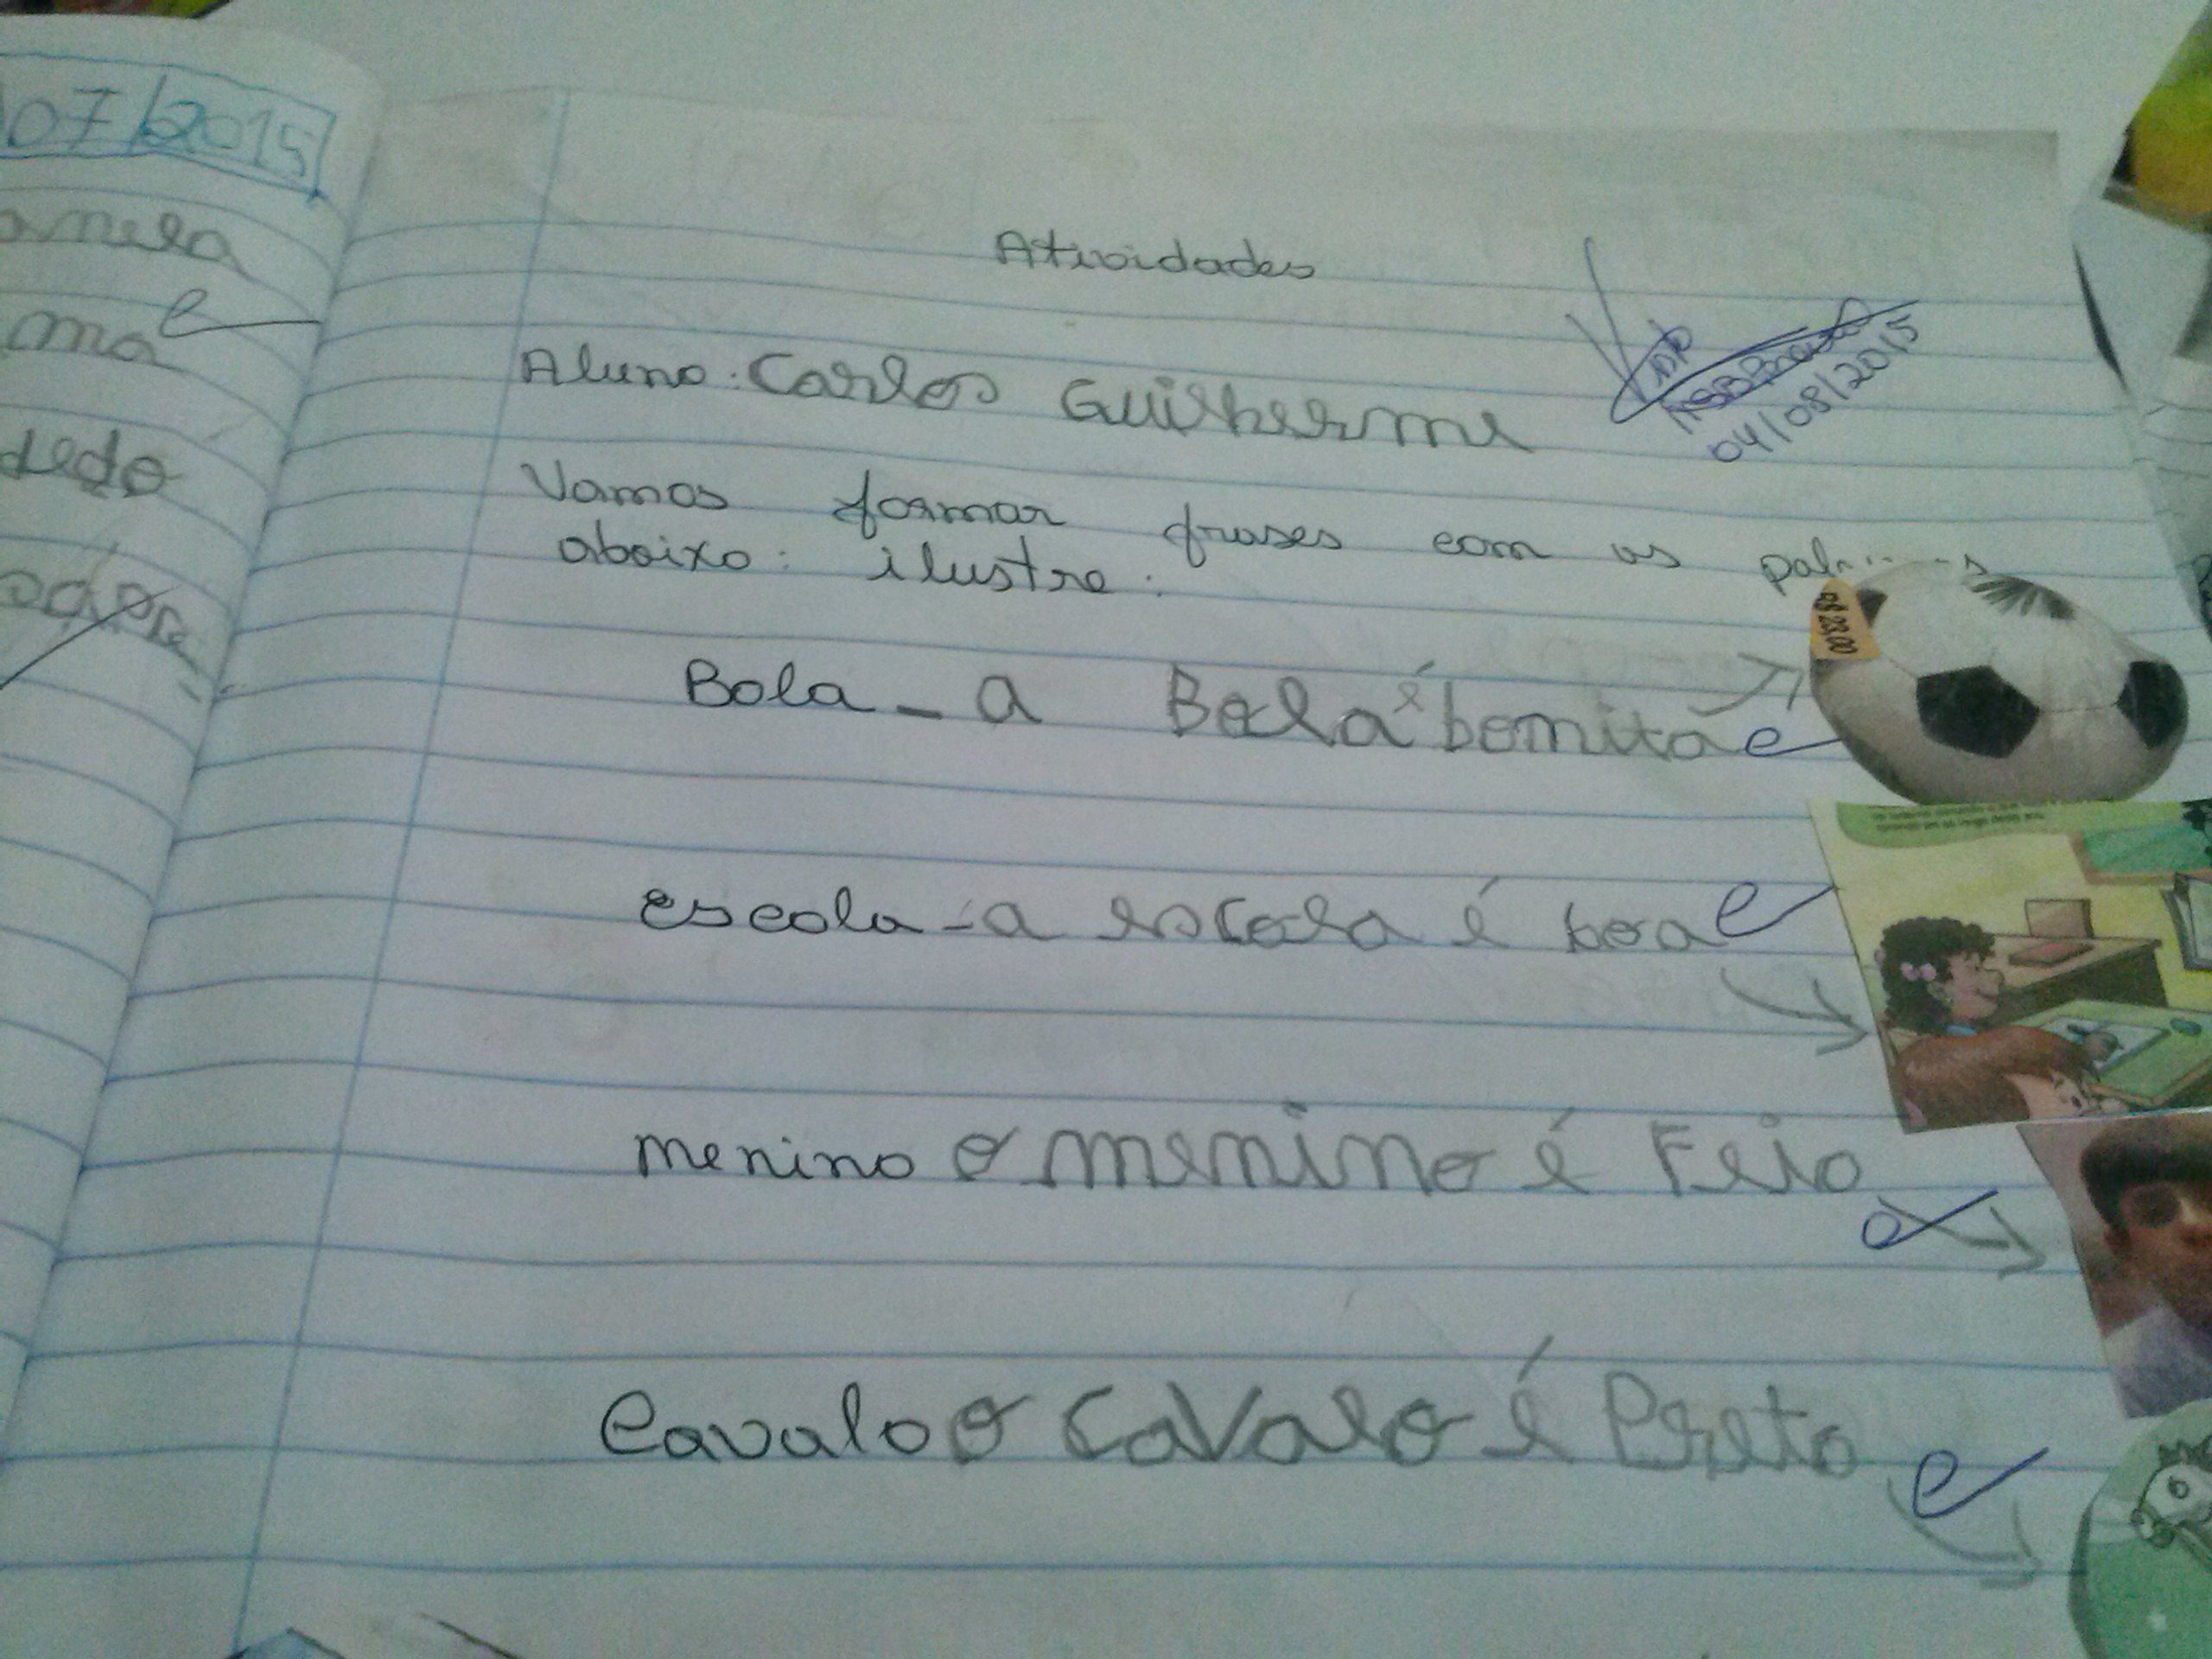 07/2015
amela
ma
dedo
Atividades
Aluno: Carlos Guilherme
04/08/2015
Vamos formar frases com as
abaixo: ilustre:
R$ 23,00
Bola - a Bola é bomita
escola - a escola é boa
menino o menino é Feio
Cavalo o CaValo é Preto